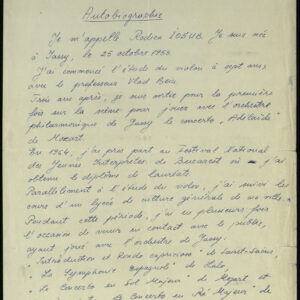 Autobiographie
Je m'appelle Rodica IOSUB. Je suis née
à Jassy, le 25 octobre 1953.
J'ai commencé l'étude du violon à sept ans
avec le professeur Vlad
Trois ans après, je suis sortie pour la première
fois sur la scène pour jouer avec l'orchestre
philarmonique de Jassy le concerto "Adélaïde"
de Mozart.
En 1964, j'ai pris part au Festival National
des Jeunes Interprètes de Bucarest où j'ai
obtenu le diplôme de lauréate.
Parallèlement à l'étude du violon, j'ai suivi les
cours d'un lycée de culture générale de ma ville.
Pendant cette période, j'ai eu plusieurs fois
l'occasion de venir en contact avec le public,
ayant joué avec l'orchestre de Jassy:
"Introduction et Rondo capriccioso" de Saint-Saëns,
"La Symphonie espagnole" de Lalo,
le Concerto en Sol Majeur de Mozart et
le Concerto en Ré Majeur de